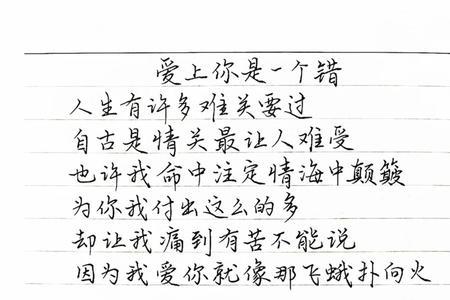 爱上你是一个错
人生有许多难关要过
自古是情关最让人难受
也许我命中注定情海中颠簸
为你我付出这么的多
却让我痛到有苦不能说
因为我爱你就像那飞蛾扑向火